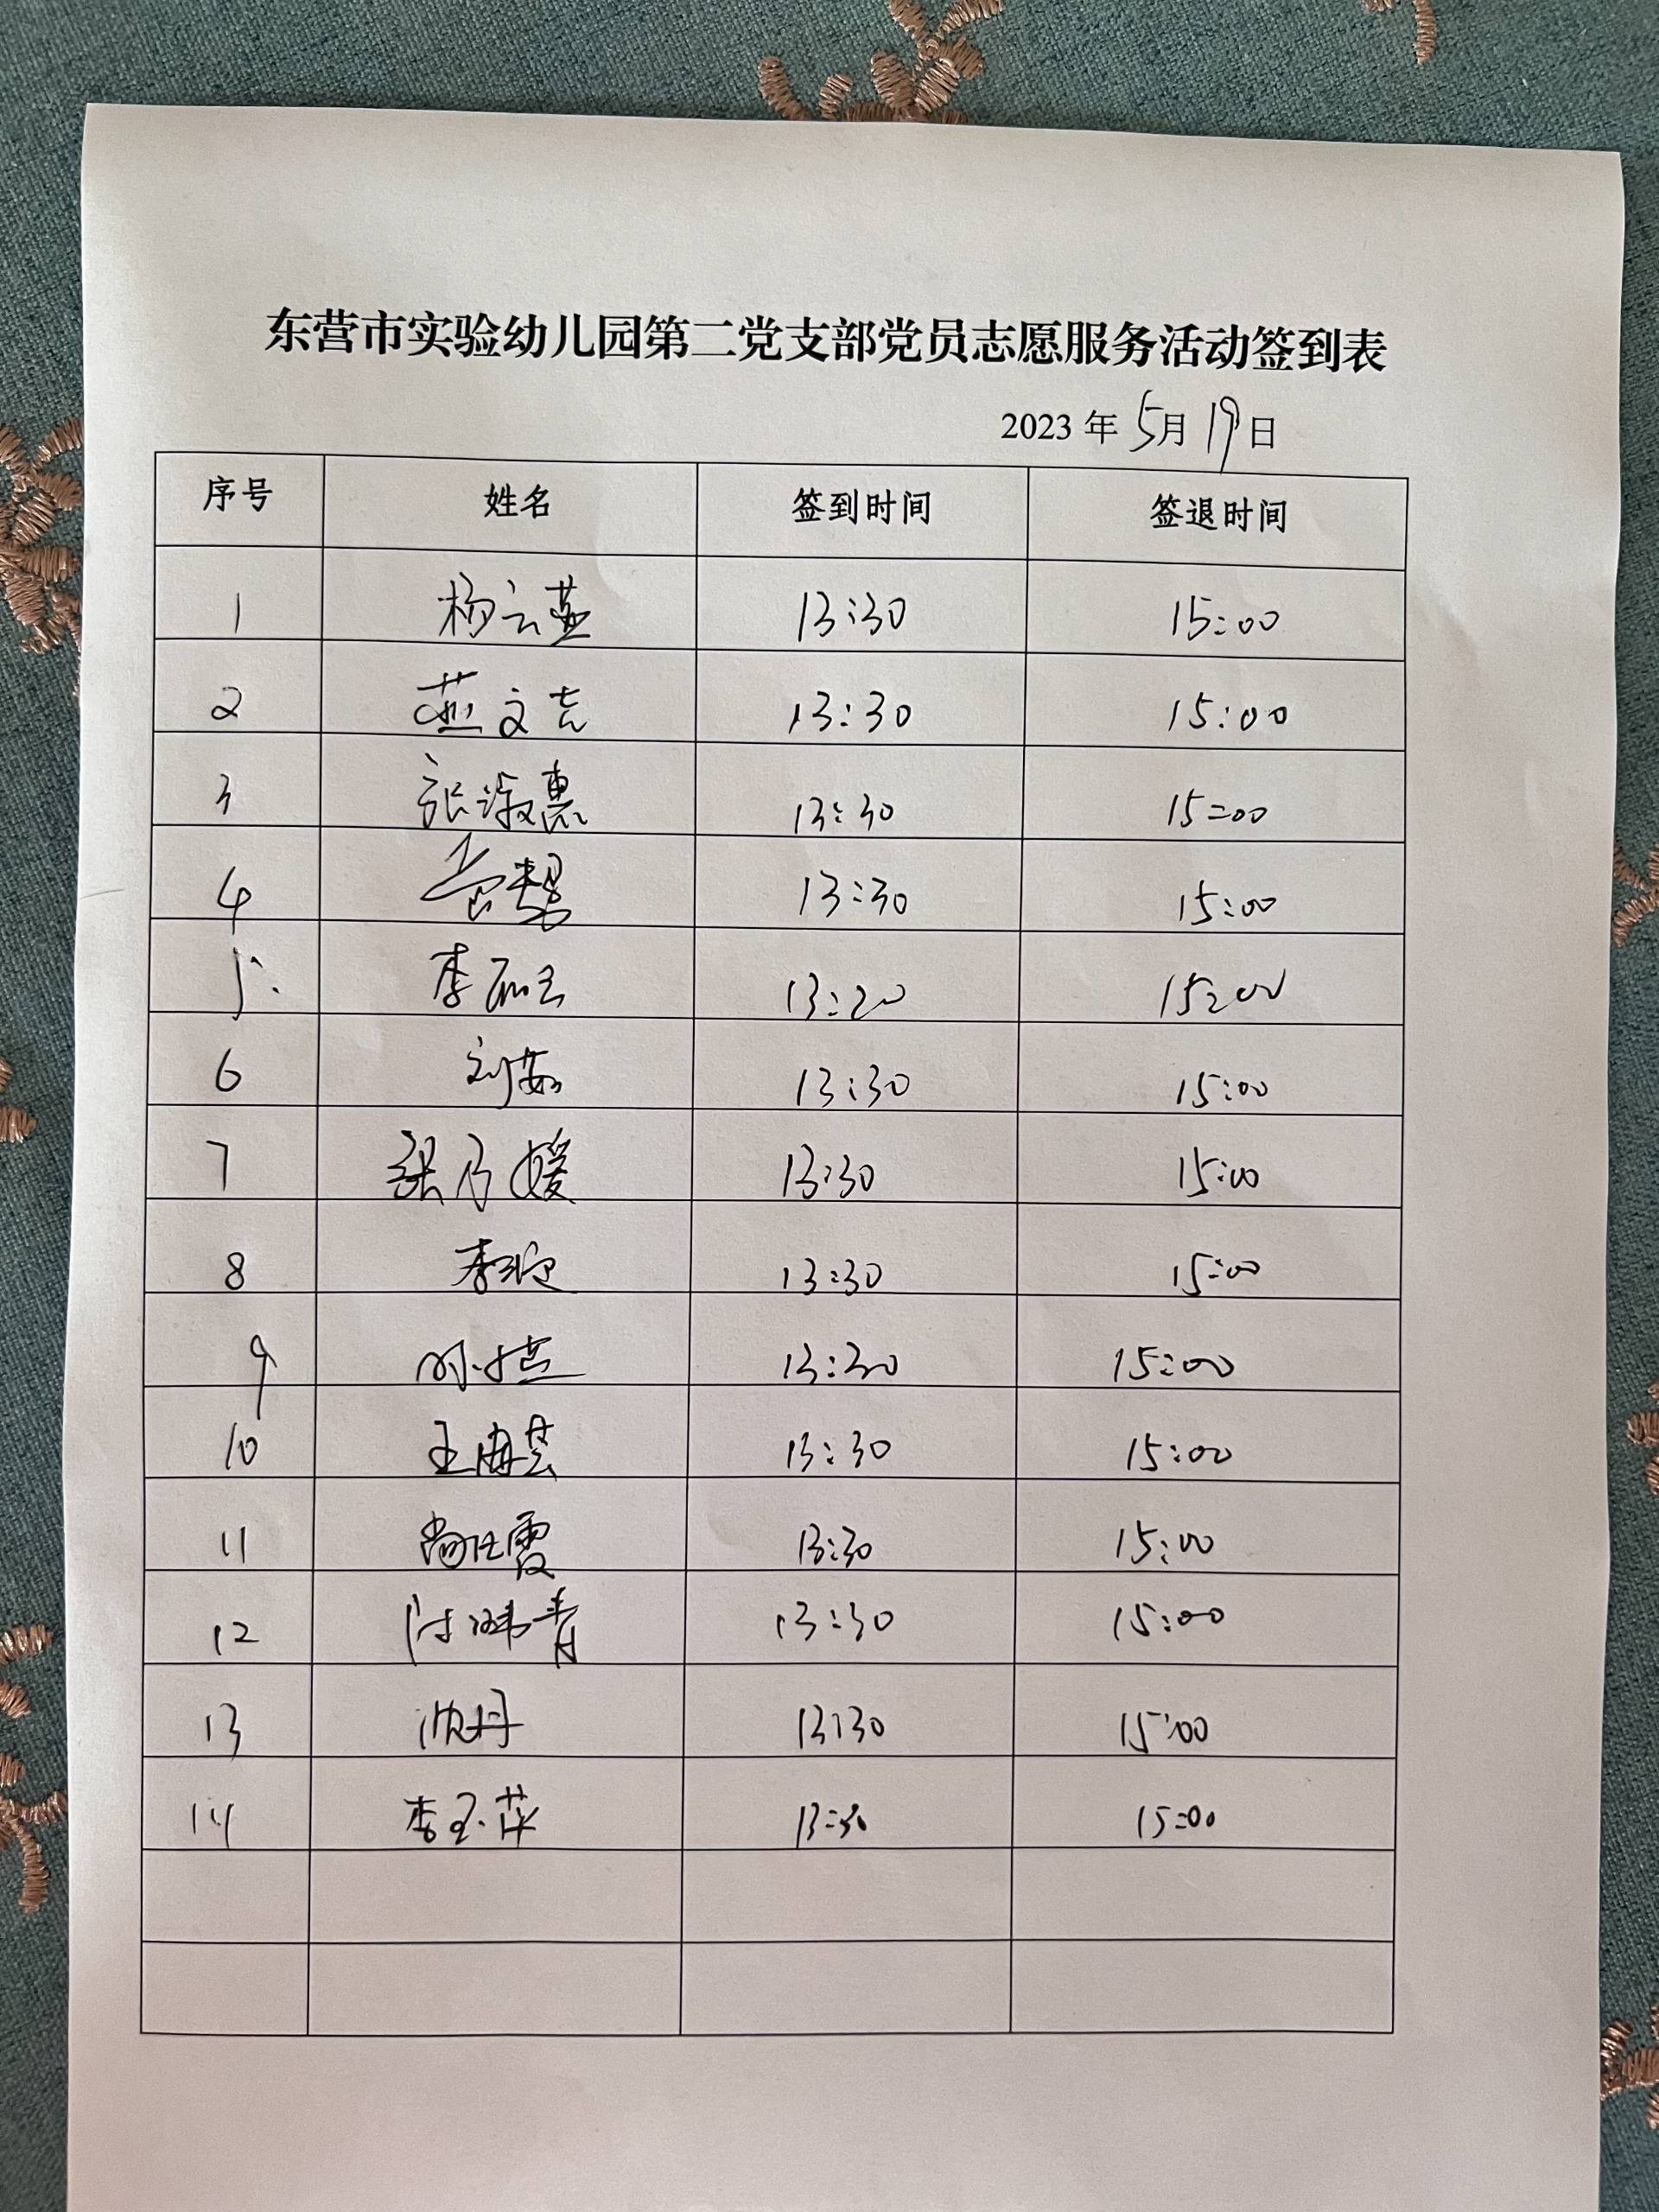 东营市实验幼儿园第二党支部党员志愿服务活动签到表
2023 年 5月 19日
序号 姓名 签到时间 签退时间
1 杨云燕 13:30 15:00
2 燕文吉 13:30 15:00
3 张淑惠 13:30 15:00
4 13:30 15:00
5 李 13:20 15:00
6 刘茹 13:30 15:00
7 张乃媛 13:30 15:00
8 李 13:30 15:00
9 13:30 15:00
10 王冉芸 13:30 15:00
11 尚 霞 13:30 15:00
12 陈 青 13:30 15:00
13 沈丹 13:30 15:00
14 李玉萍 13:30 15:00